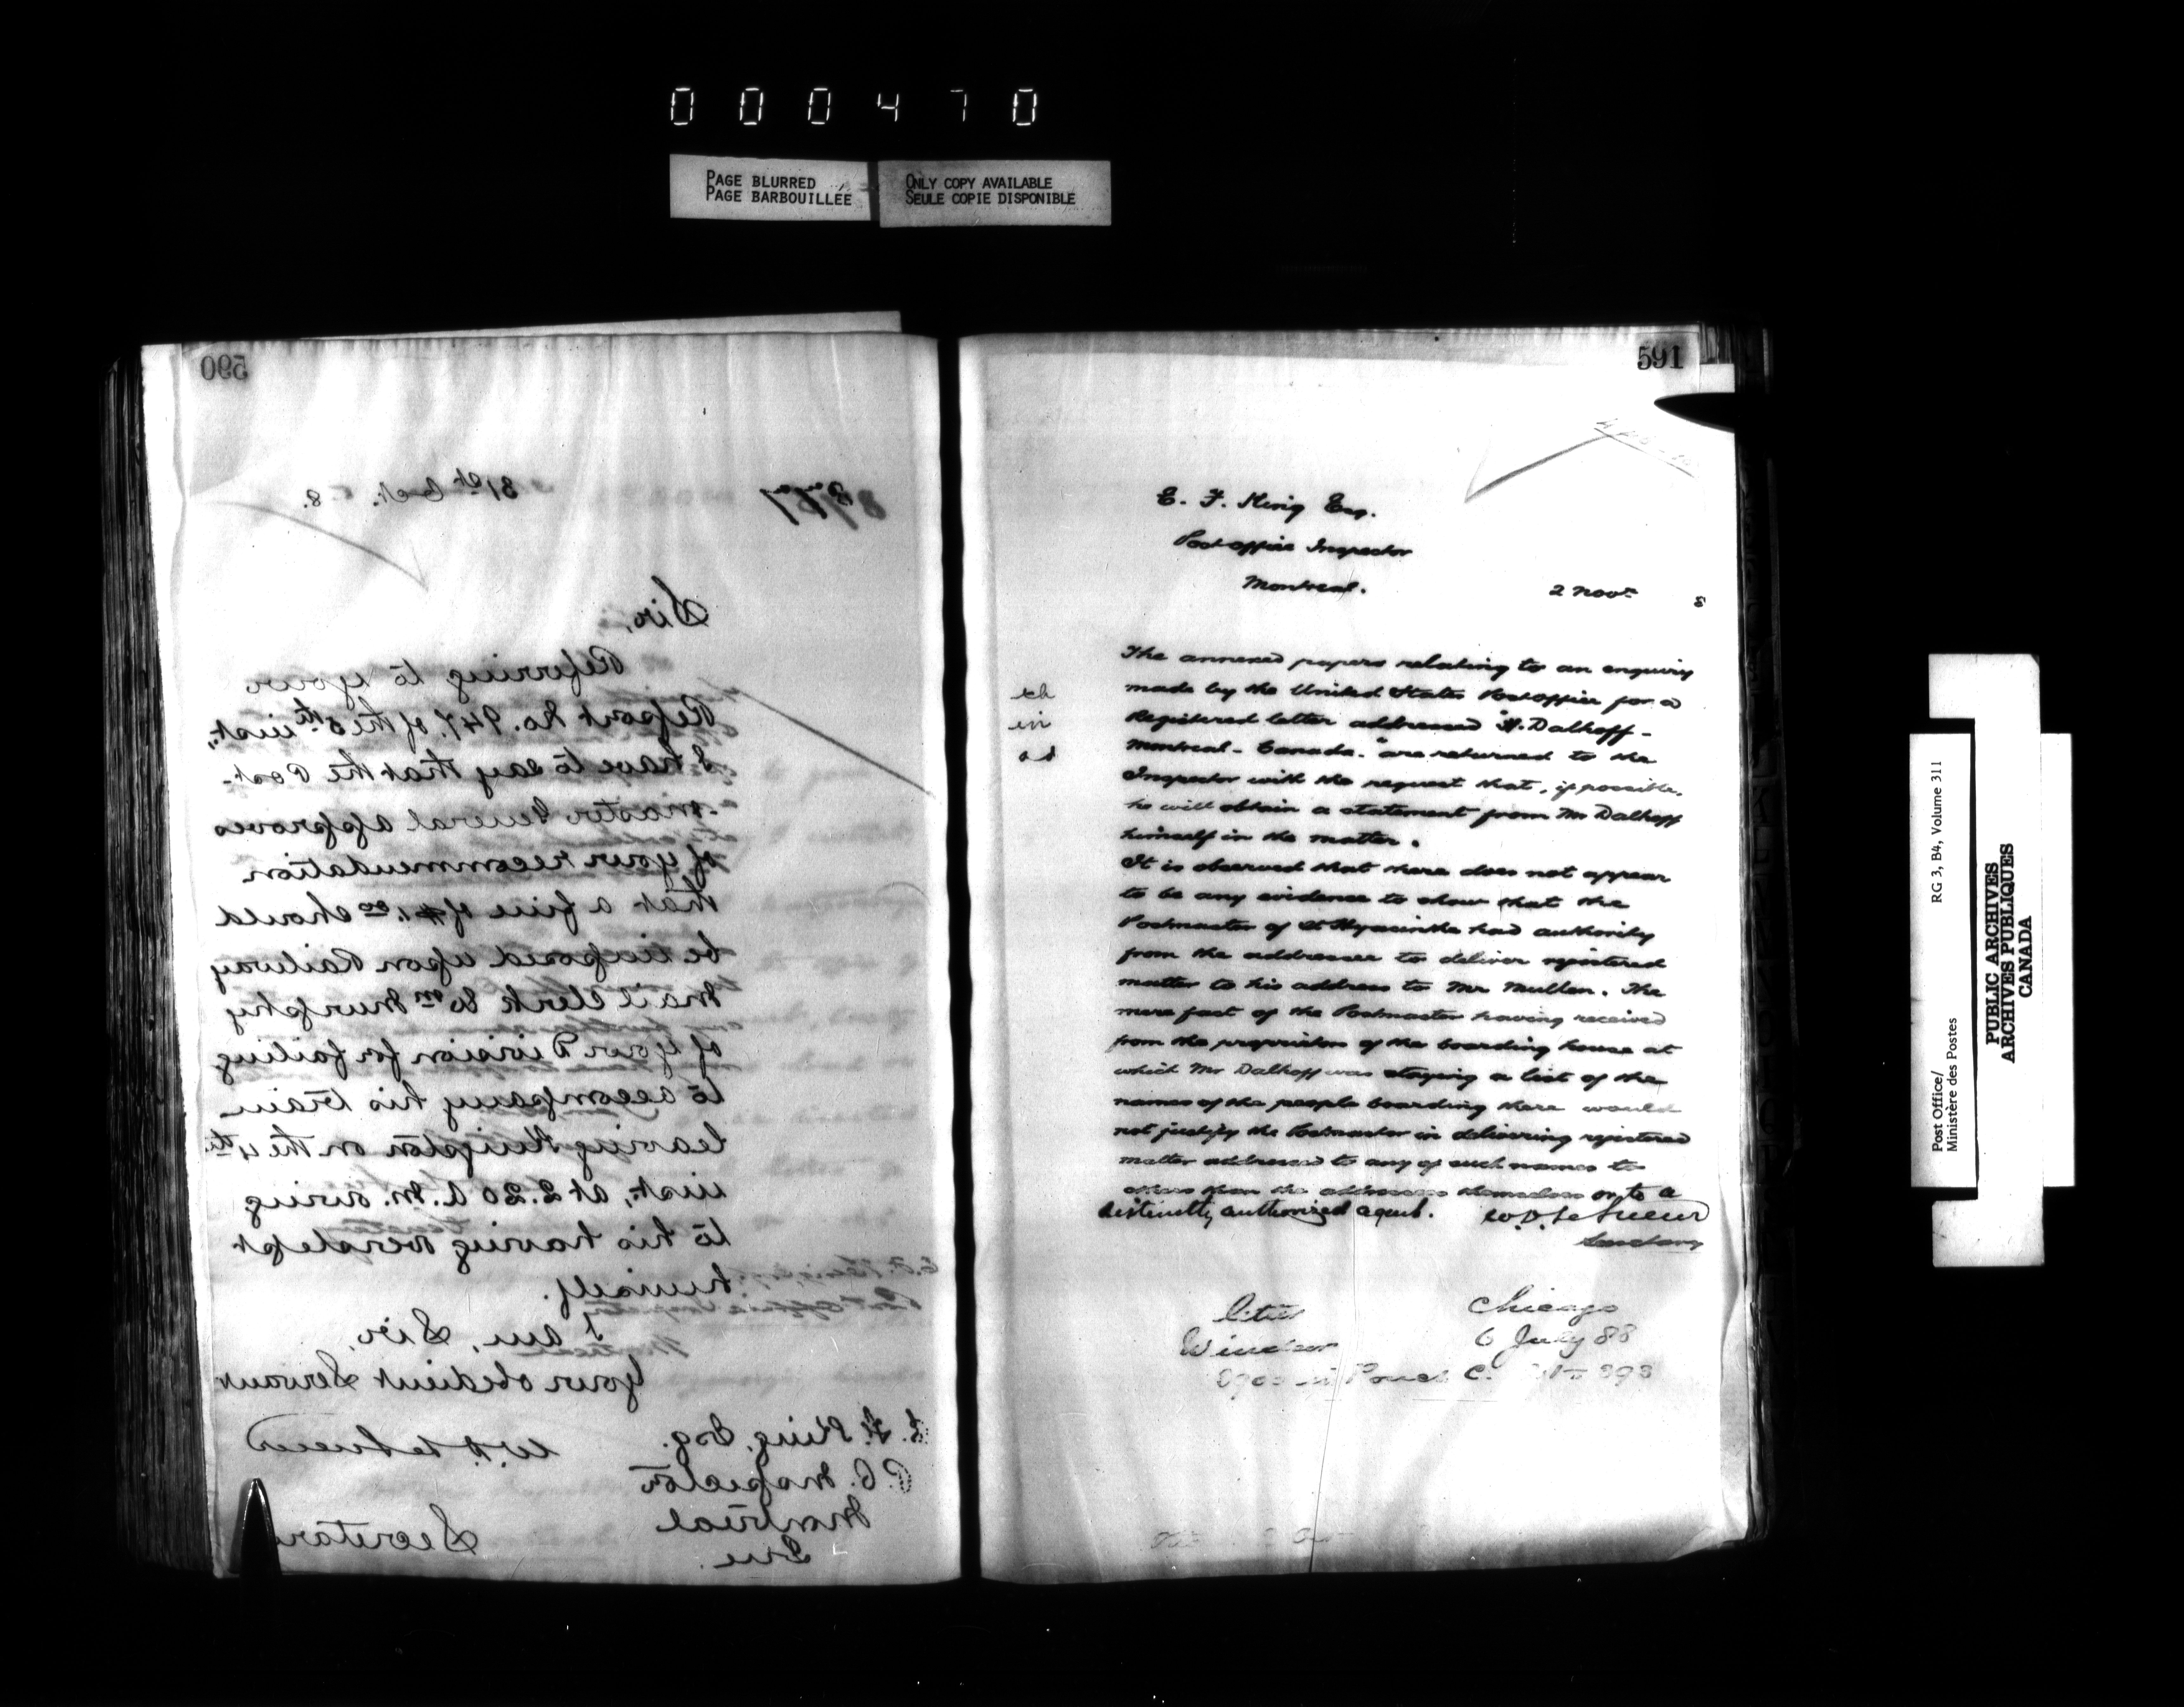 000470
PAGE BLURRED
PAGE BARBOUILLÉE
ONLY COPY AVAILABLE
SEULE COPIE DISPONIBLE
590
31st Oct. 8.
Sir,
Referring to your
Report No. 947. of the 5th inst.,
I have to say that the Post-
-master General approves
of your recommendation
that a fine of $1.00 should
be imposed upon Railway
Mail Clerk Wm Murphy
of your Division for failing
to accompany his train
leaving Kingston on the 4th
inst., at 2.20 A.M. owing
to his having overslept
himself.
I am, Sir,
Your obedient Servant
W. D. LeSueur
Secretary
E. F. King, Esq.
P. O. Inspector
Montreal
Que.
591
E. F. King Esq.
Post office Inspector
Montreal.
2 Novr 8
The annexed papers relating to an enquiry
made by the United States Post office for a
Registered letter addressed "H. Dalhoff -
Montreal - Canada." are returned to the
Inspector with the request that, if possible,
he will obtain a statement from Mr Dalhoff
himself in the matter.
It is observed that there does not appear
to be any evidence to show that the
Postmaster of St Hyacinthe had authority
from the addressee to deliver registered
matter to his address to Mr Mullen. The
mere fact of the Postmaster having received
from the proprietor of the boarding house at
which Mr Dalhoff was staying a list of the
names of the people boarding there would
not justify the Postmaster in delivering registered
matter addressed to any of such names to
others than the addressees themselves or to a
distinctly authorized agent. W. D. LeSueur
Secretary
Chicago
Windsor 6 July 88
Pouch C.
Post Office/
Ministère des Postes
RG 3, B4, Volume 311
PUBLIC ARCHIVES
ARCHIVES PUBLIQUES
CANADA